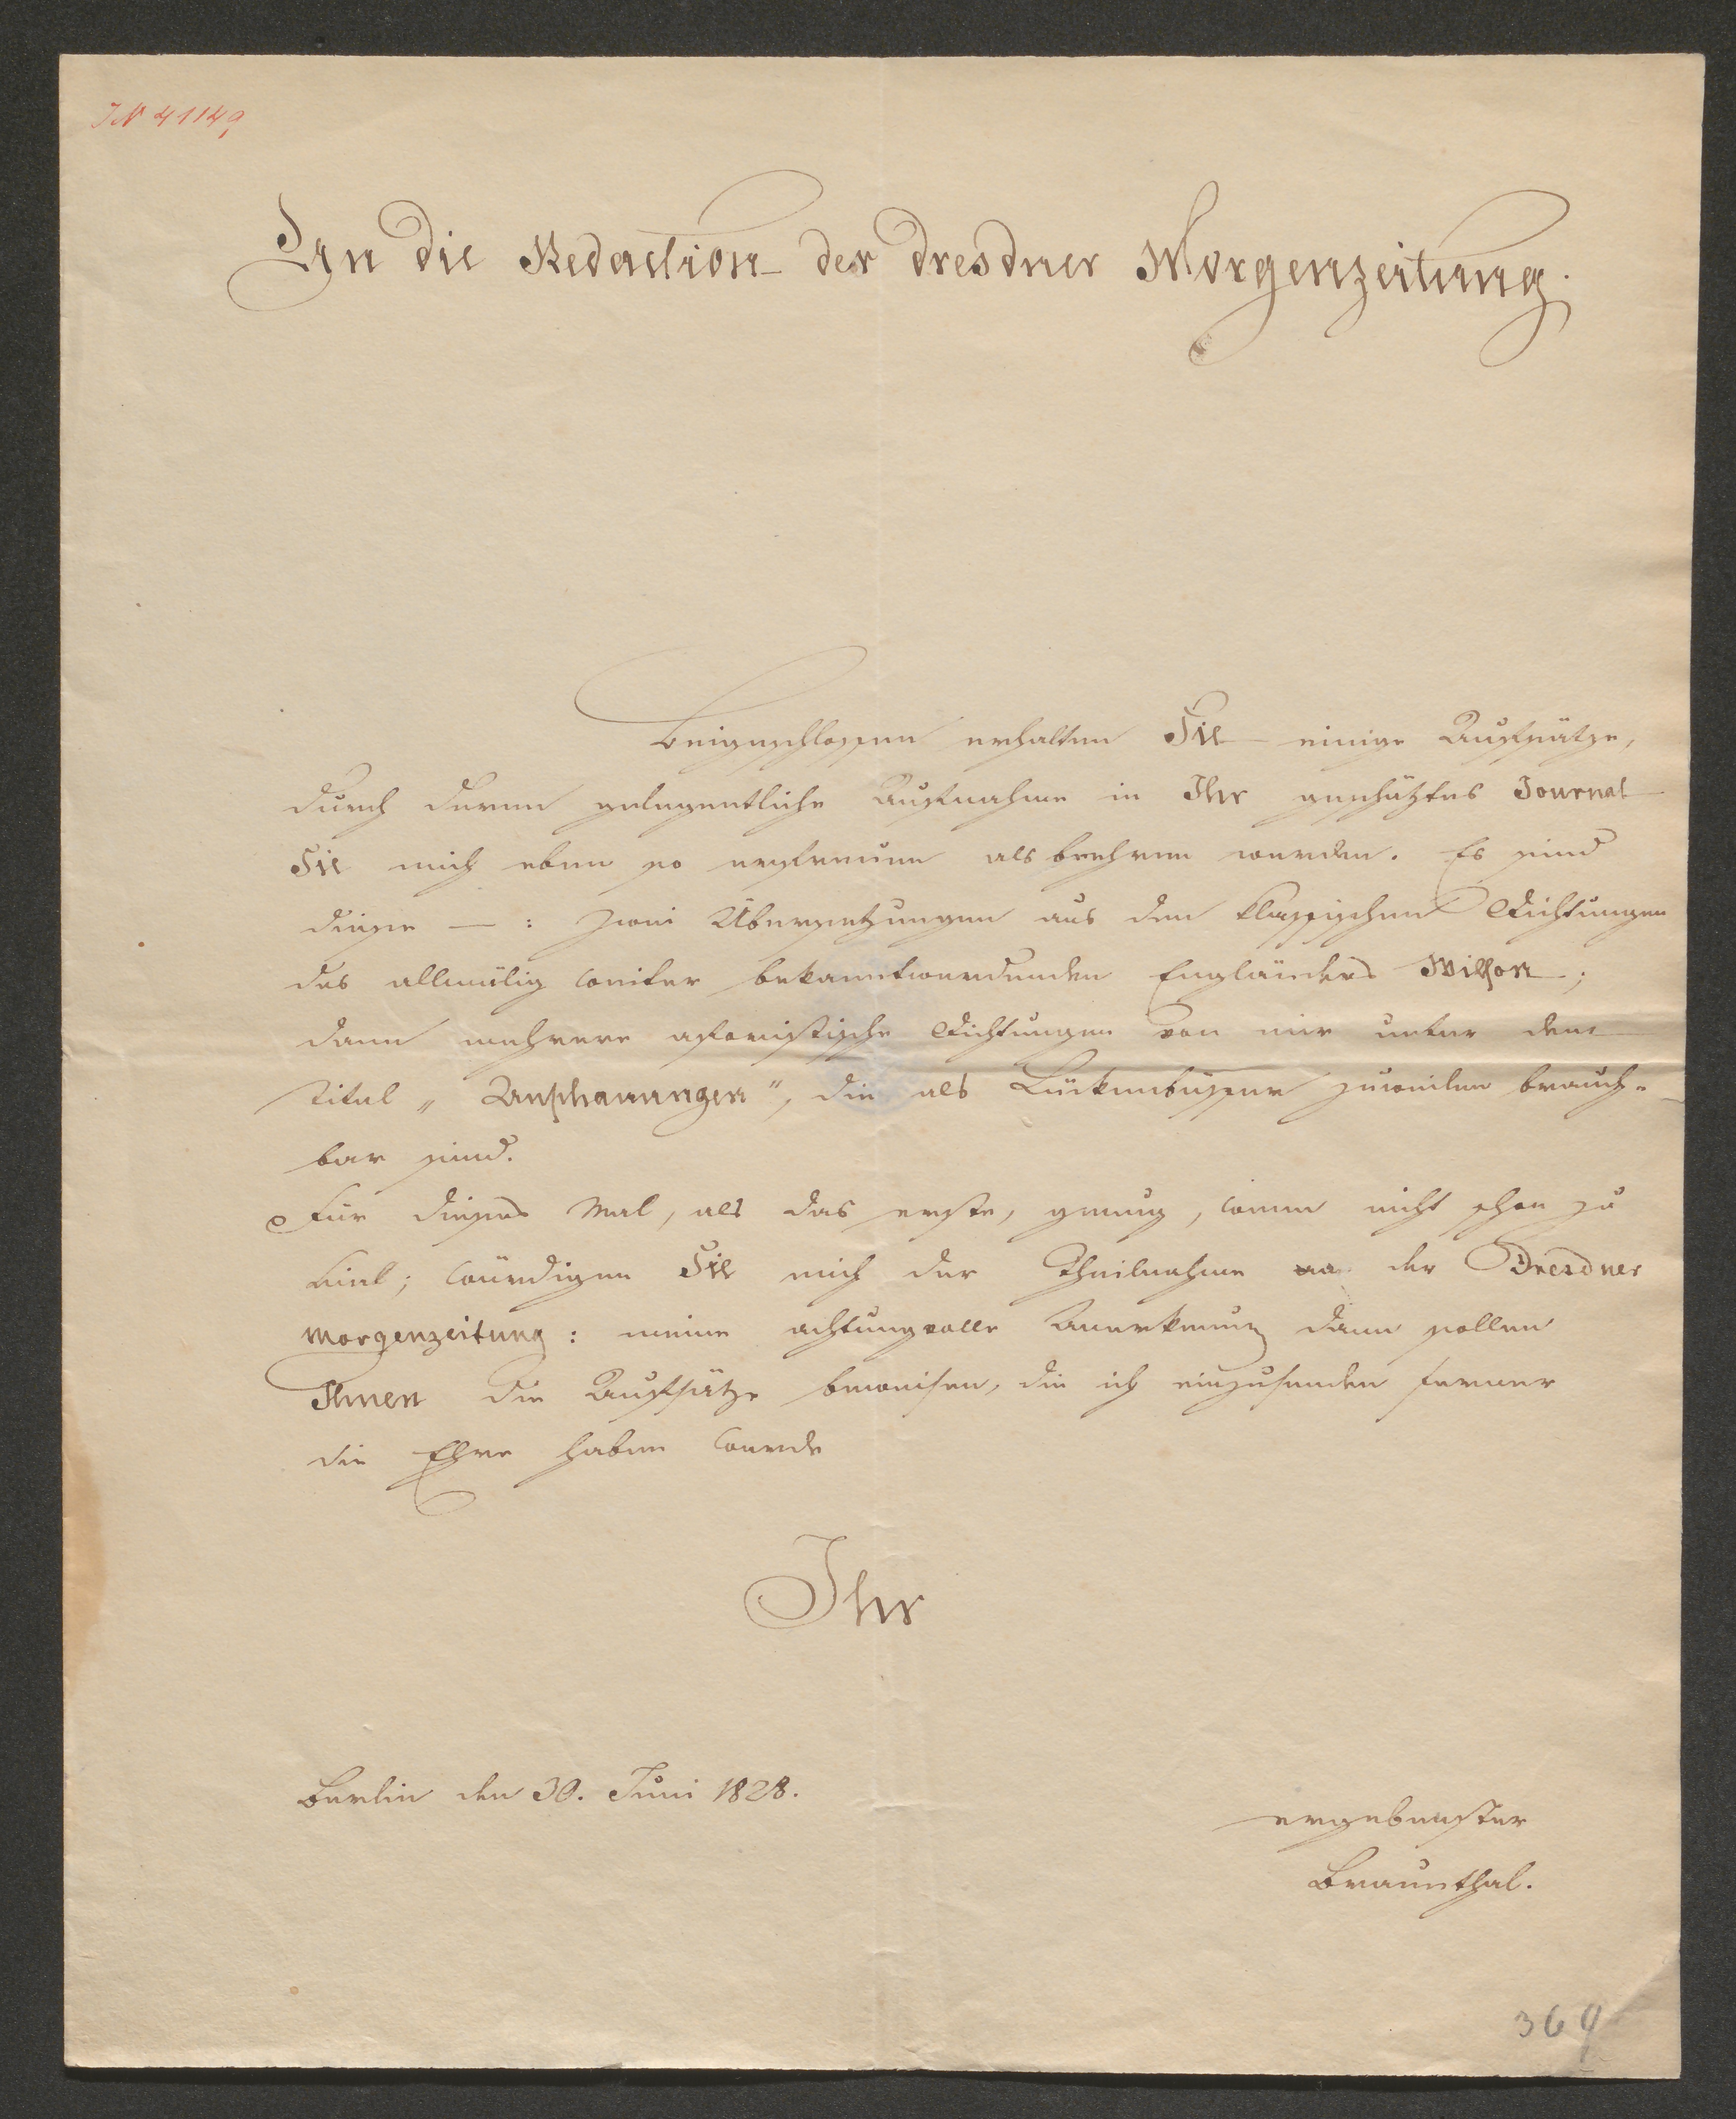 IN 41149
An die Redaction der Dresdner Morgenzeitung.
Beigeschlossen erhalten Sie einige Aufsätze,
durch deren gelegentliche Aufnahme in Ihr geschätztes Journal
Sie mich eben so erfreuen als beehren werden. Es sind
diese — : zwei Übersetzungen aus den klassischen Dichtungen
des allmälig weiter bekanntwerdenden Engländers Wilson;
dann mehrere aforistische Dichtungen von mir unter dem
Titel „Anschauungen", die als Lückenbüsser zuweilen brauch-
bar sind.
Für dieses Mal, als das erste, genug, wenn nicht schon zu
viel; würdigen Sie mich der Theilnahme an der Dresdner
Morgenzeitung: meine achtungvolle Anerkennung dann sollen
Ihnen die Aufsätze beweisen, die ich einzusenden ferner
die Ehre haben werde
Ihr
Berlin den 30. Juni 1828.
ergebenster
Braunthal.
369